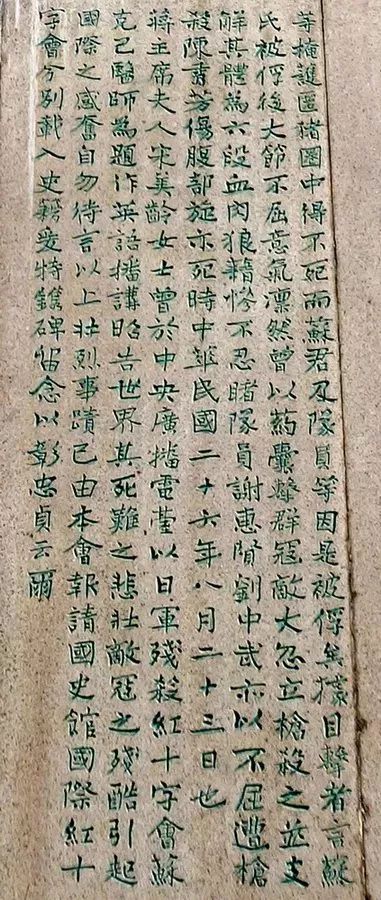 等掩護匿豬圈中得不死而蘇君及隊員等因是被俘矣據目擊者言蘇
氏被俘後大節不屈意氣凜然曾以药囊擊群寇敵大忿立槍殺之並支
解其體為六段血肉狼藉慘不忍睹隊員謝惠賢劉中武亦以不屈遭槍
殺陳壽芳傷腹部旋亦死時中華民國二十六年八月二十三日也
蔣主席夫人宋美齡女士曾於中央廣播電臺以日軍殘殺紅十字會蘇
克己醫師為題作英語播講昭告世界其死難之悲壯敵寇之殘酷引起
國際之感奮自勿待言以上壯烈事蹟已由本會報請國史館國際紅十
字會分別載入史籍爰特鐫碑留念以彰忠貞云爾